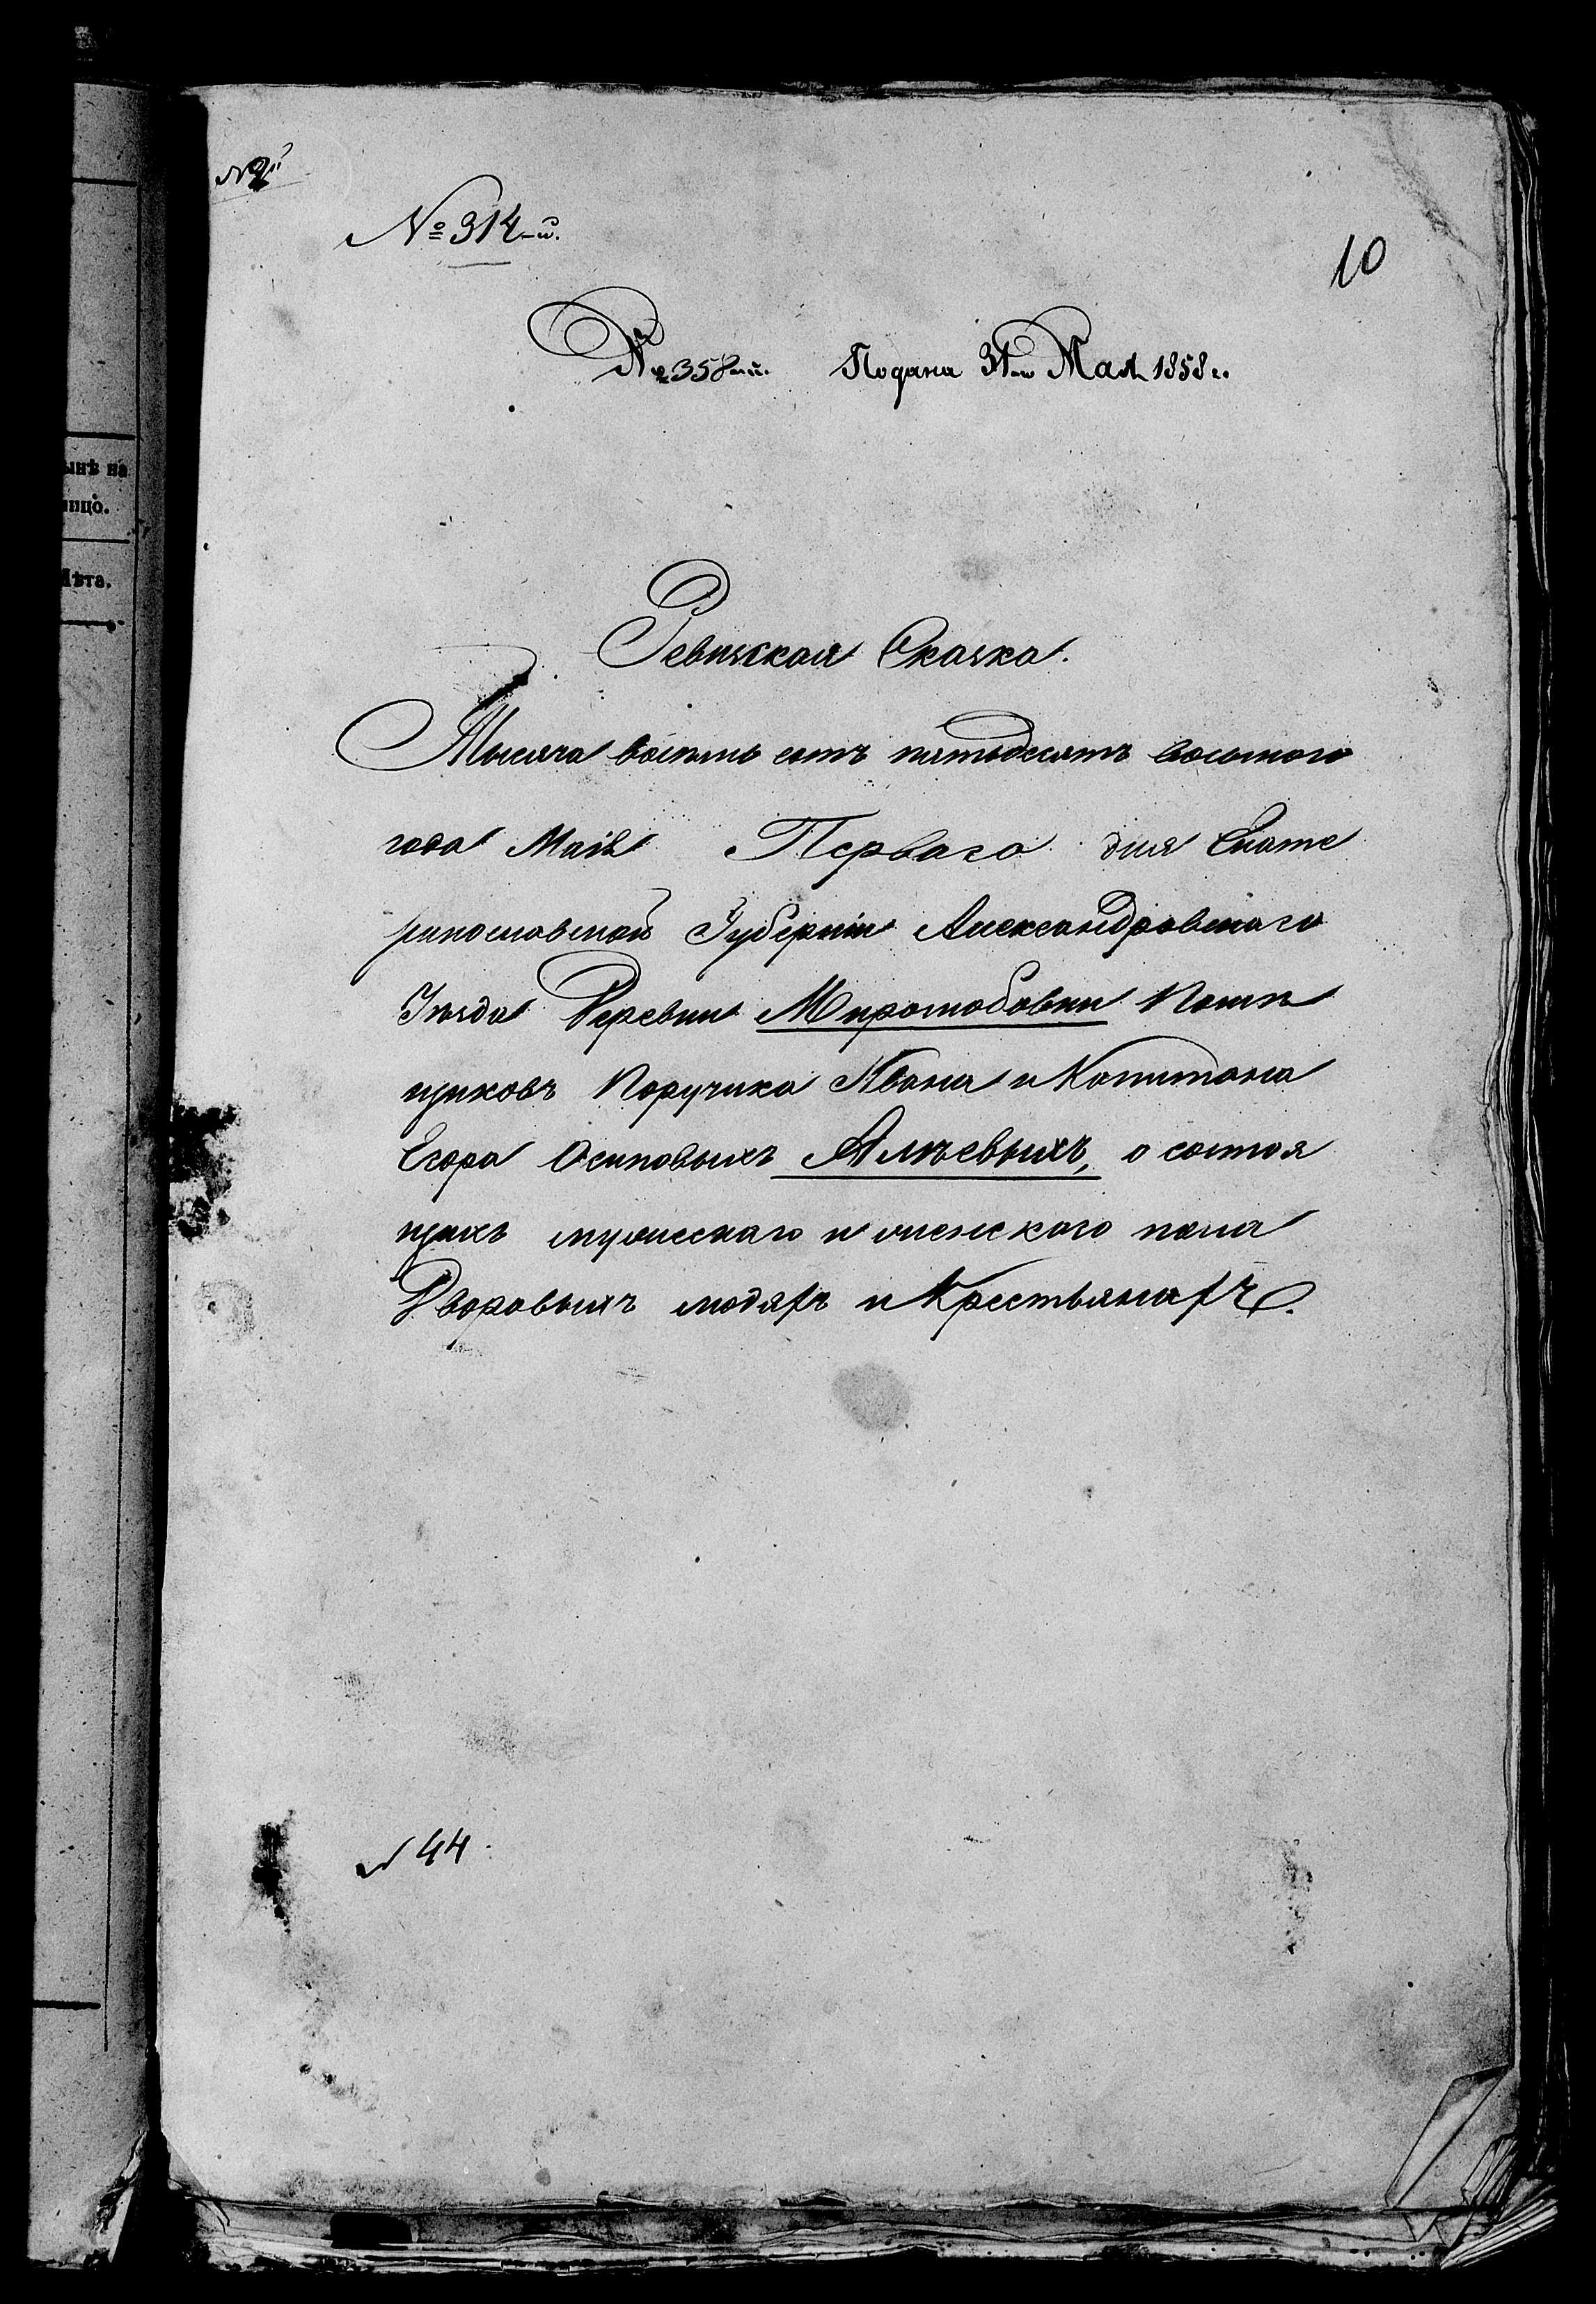 ынѣ на
лицо.
Лѣта.
№ 314-й.
10
№ 358-й. Подана 31-го Мая 1858 г.
Ревизская Сказка.
Тысяча восемь сотъ пятьдесятъ восьмого
года Маія Перваго дня Екате
ринославской Губерніи Александровскаго
Уѣзда Деревни Миролюбовки Помѣ
щиковъ Поручика Ивана и Капитана
Егора Осиповыхъ Алѣевыхъ, о состоя
щихъ мужескаго и женскаго пола
Дворовыхъ людяхъ и Крестьянахъ.
№ 44